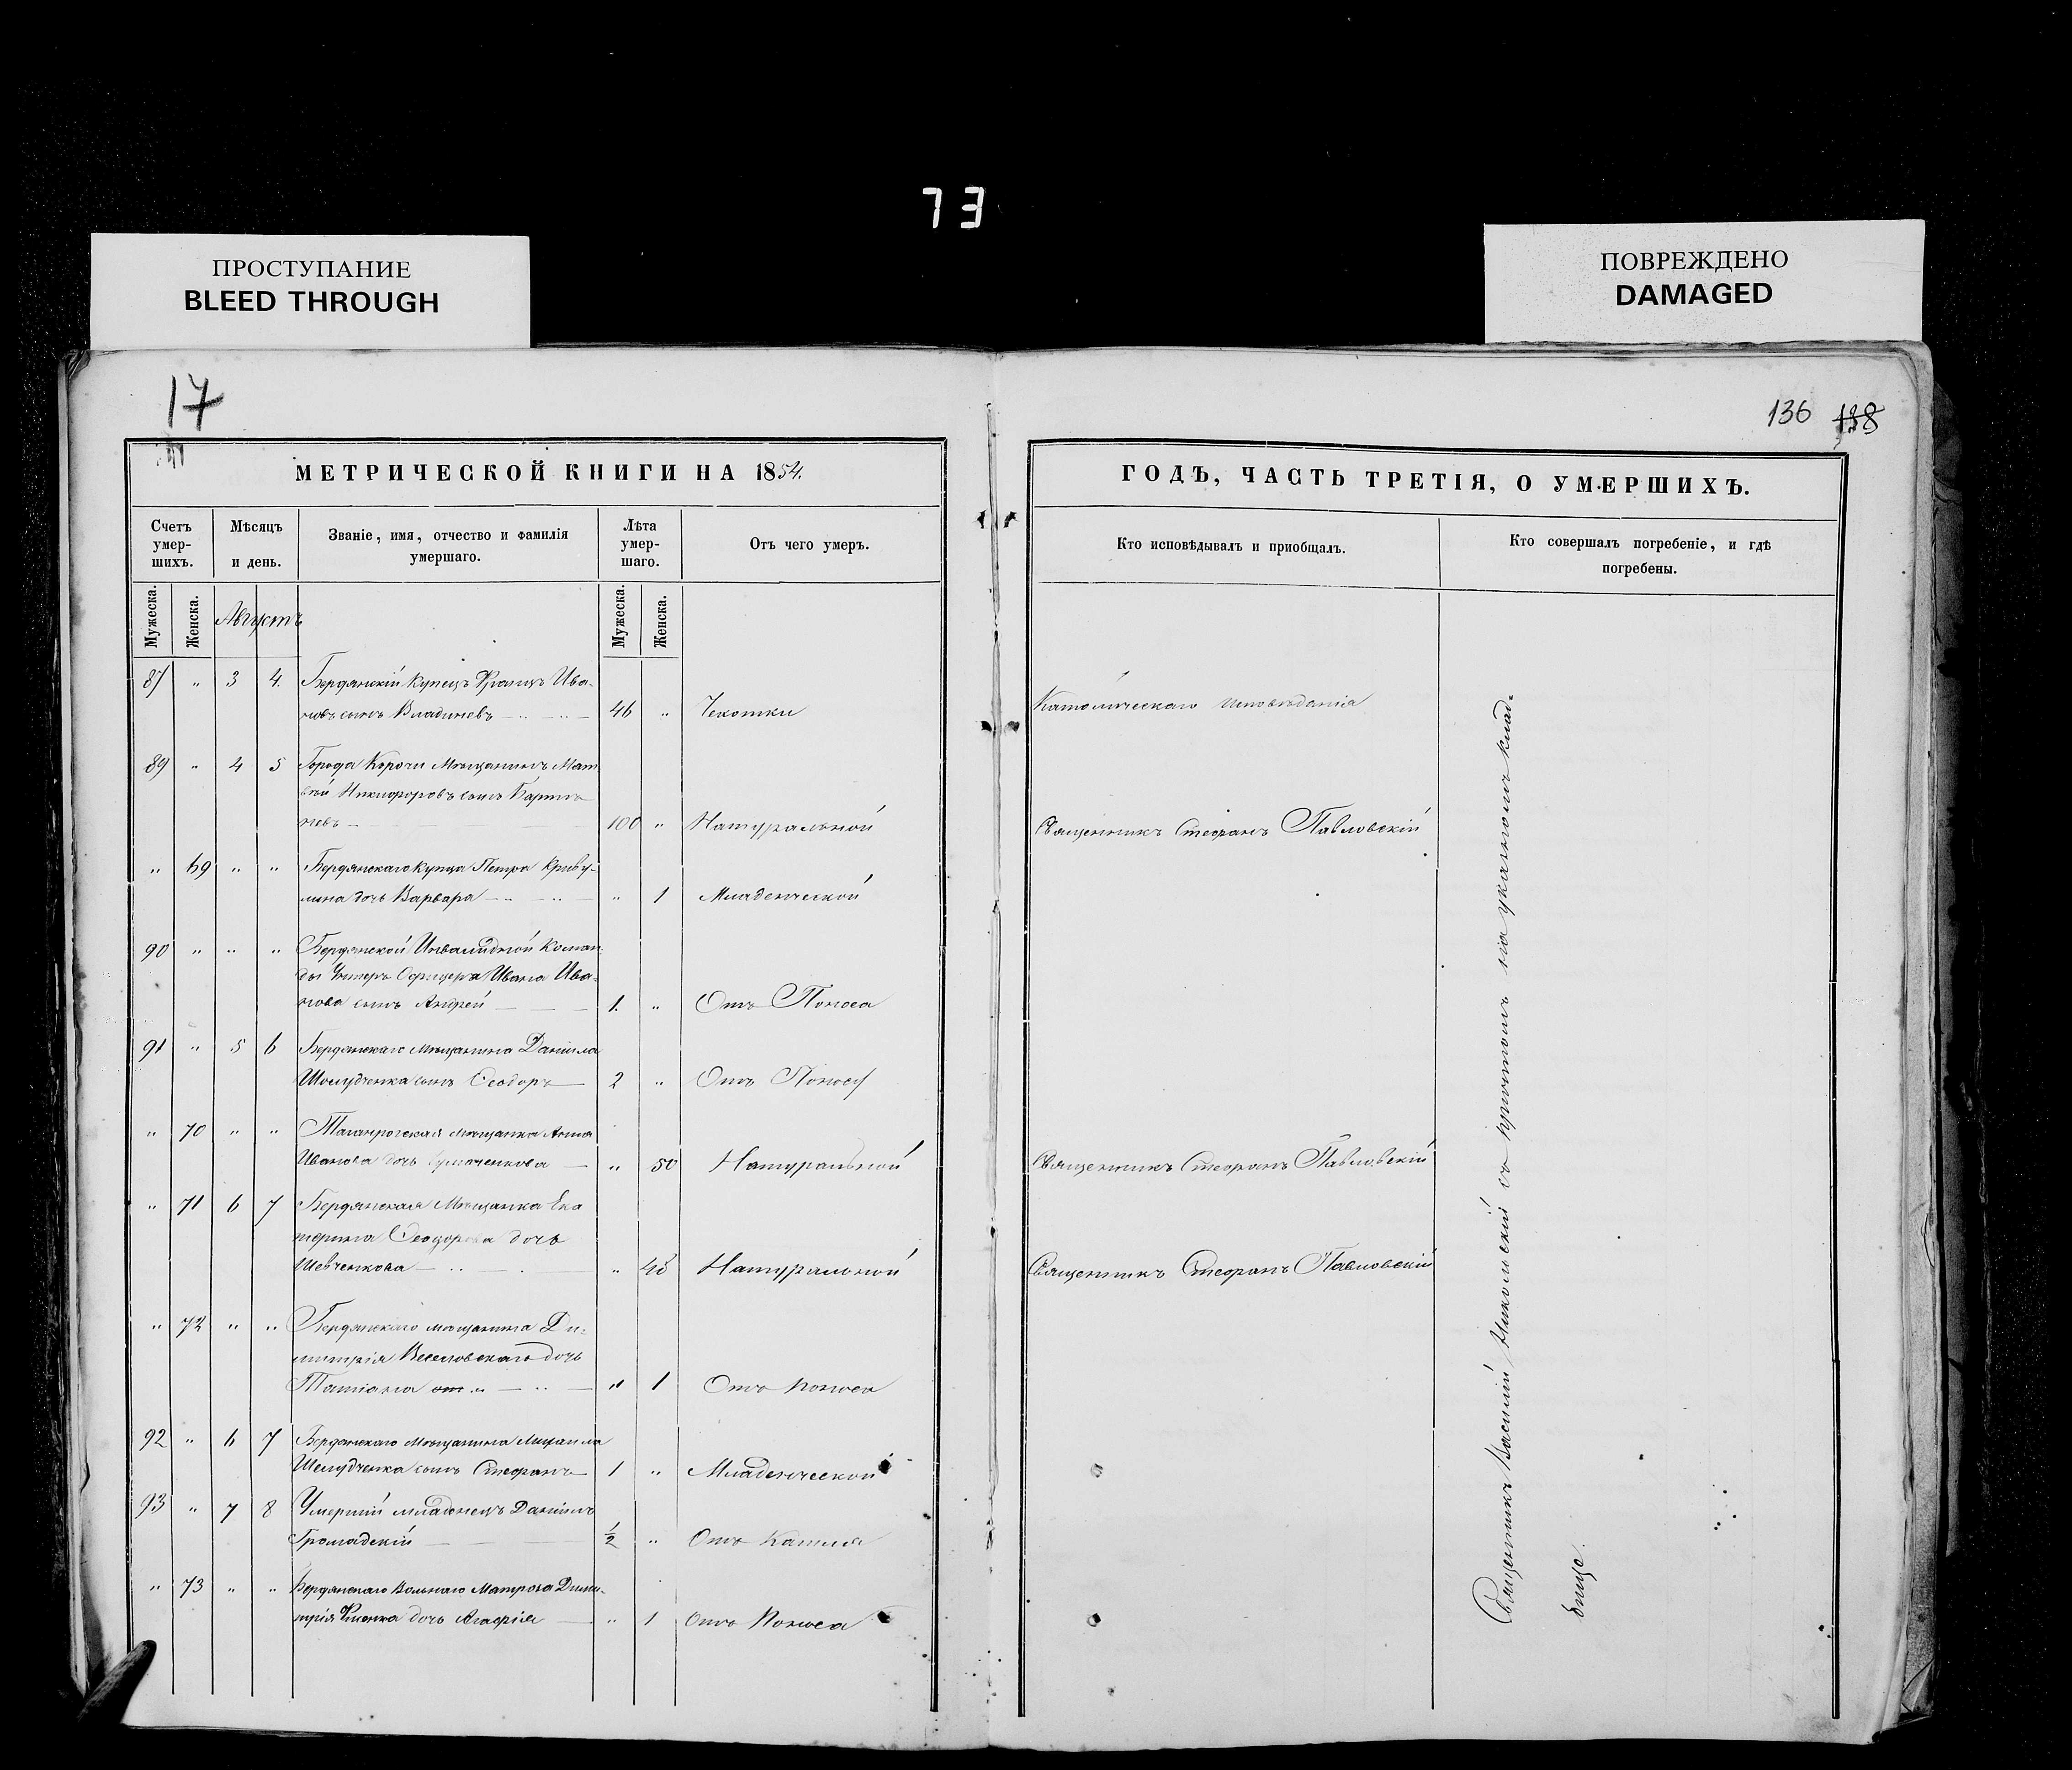 73
ПРОСТУПАНИЕ
BLEED THROUGH
ПОВРЕЖДЕНО
DAMAGED
17
136 138
МЕТРИЧЕСКОЙ КНИГИ НА 1854.
ГОДЪ, ЧАСТЬ ТРЕТІЯ, О УМЕРШИХЪ.
Счетъ умер-шихъ.
Мѣсяцъ и день.
Званіе, имя, отчество и фамилія умершаго.
Лѣта умер-шаго.
Отъ чего умеръ.
Кто исповѣдывалъ и приобщалъ.
Кто совершалъ погребеніе, и гдѣ погребены.
Мужеска. Женска. Августъ Мужеска. Женска.
87 " 3 4. Бердянскій Купецъ Францъ Ива-
новъ сынъ Владиневъ 46 " Чехотки Католическаго исповѣданія
89 " 4 5 Города Корочи Мѣщанинъ Мат
вѣй Никифоровъ сынъ
невъ 100 " Натуральной Священникъ Стефанъ Павловскій
" 69 " " Бердянскаго Купца Петра Криву-
лина дочь Варвара " 1 Младенческой
90 " " " Бердянской Инвалидной Коман
ды Унтеръ Офицера Ивана Ива-
нова сынъ Андрей 1. " Отъ Поноса
91 " 5 6 Бердянскаго Мѣщанина Даніила
Шелудченка сынъ Ѳеодоръ 2 " Отъ Поноса
" 70 " " Таганрогская мѣщанка Анна
Иванова дочь " 50 Натуральной Священникъ Стефанъ Павловскій
" 71 6 7 Бердянская Мѣщанка Ека
терина Ѳеодорова дочь
Шевченкова " 48 Натуральной Священникъ Стефанъ Павловскій
" 72 " " Бердянскаго мѣщанина Ди-
митрія Веселовскаго дочь
Татіана от " 1 Отъ поноса
92 " 6 7 Бердянскаго Мѣщанина Михаила
Шелудченка сынъ Стефанъ 1 " Младенческой
93 " 7 8 Умершій младенецъ Даніилъ
Громадскій 1/2 " Отъ Кашля
" 73 " " Бердянскаго Вольнаго Матроса Дими-
трія дочь Агафія " 1 Отъ Поноса
Священникъ Василій Никольскій съ причтомъ на указномъ клад-
бище.